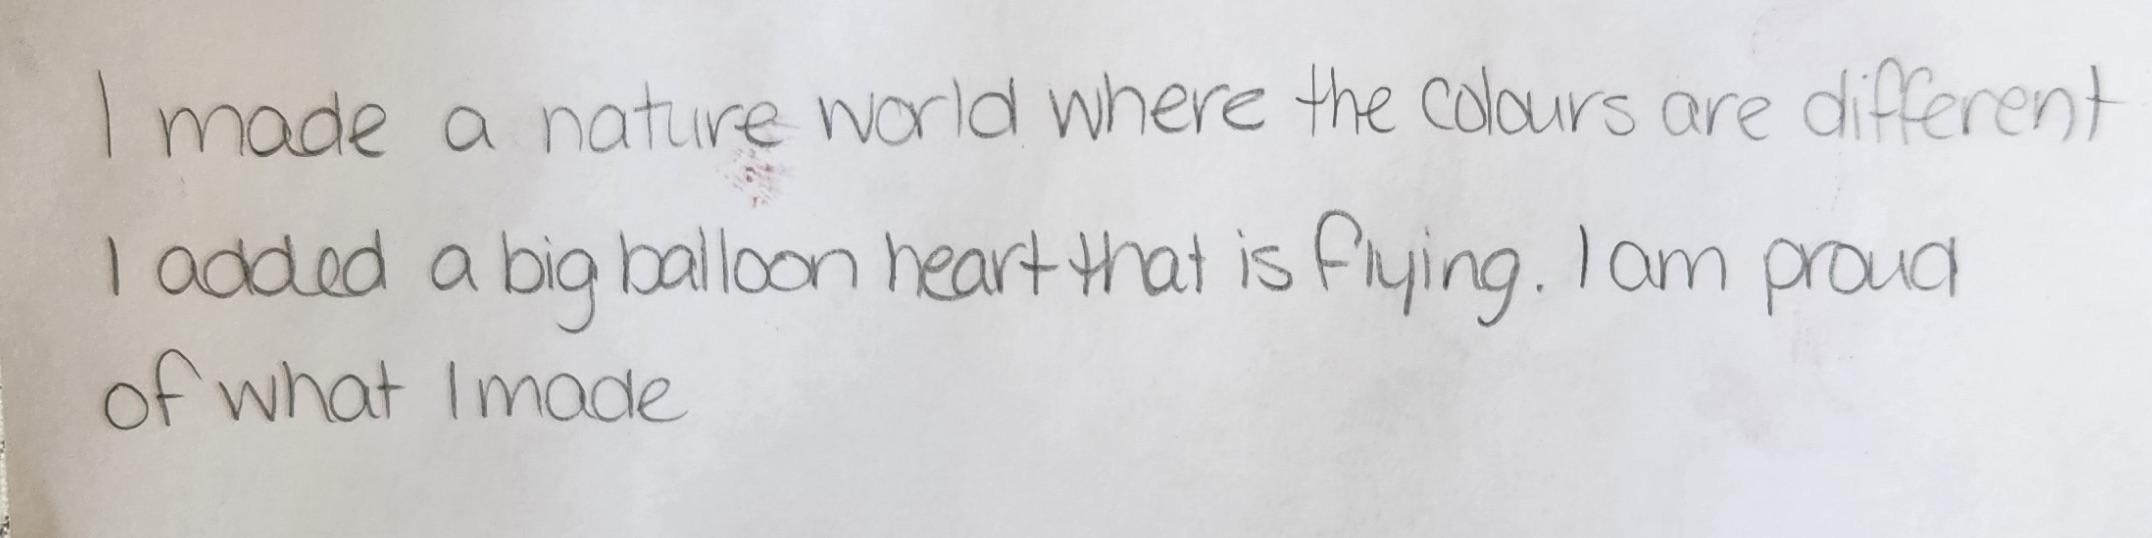 I made a nature world where the colours are different
I added a big balloon heart that is flying. I am proud
of what I made